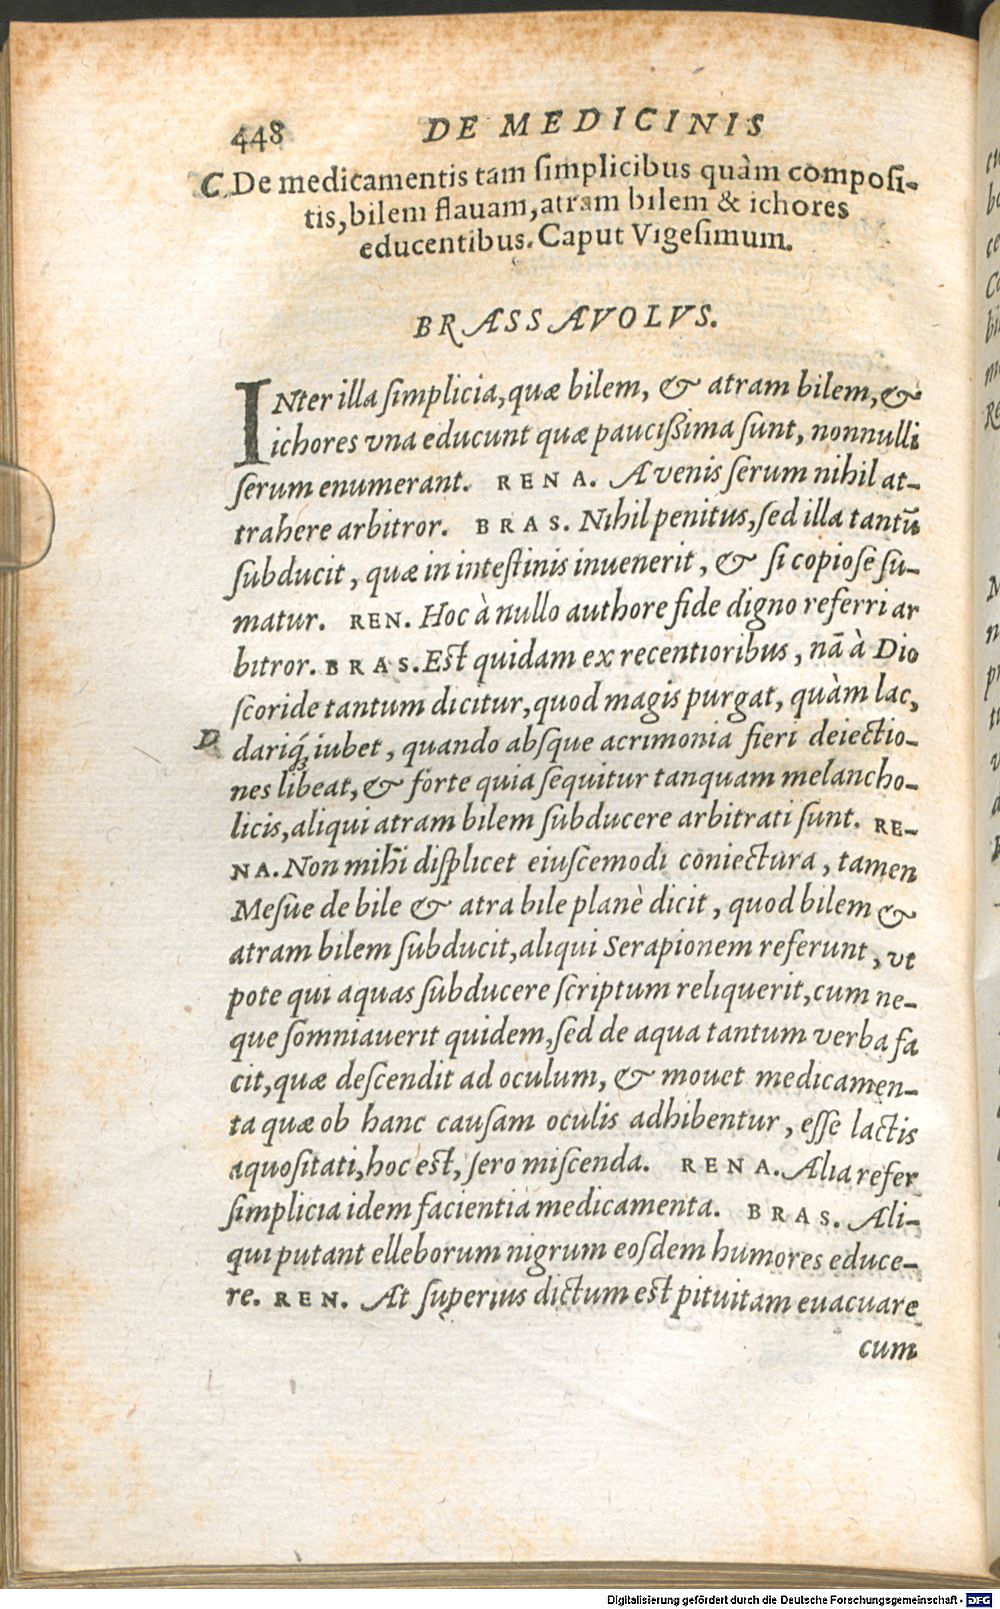 448 DE MEDICINIS
C De medicamentis tam ſimplicibus quàm compoſi-
tis, bilem flauam, atram bilem & ichores
educentibus. Caput Vigeſimum.
BRASSAVOLVS.
INter illa ſimplicia, quæ bilem, & atram bilem, &
ichores vna educunt quæ pauciſsima ſunt, nonnulli
ſerum enumerant. RENA. A venis ſerum nihil at-
trahere arbitror. BRAS. Nihil penitus, ſed illa tantũ
ſubducit, quæ in inteſtinis inuenerit, & ſi copioſe ſu-
matur. REN. Hoc à nullo authore fide digno referri ar
bitror. BRAS. Eſt quidam ex recentioribus, nã à Dio
ſcoride tantum dicitur, quod magis purgat, quàm lac,
D dariq́; iubet, quando abſque acrimonia fieri deiectio-
nes libeat, & forte quia ſequitur tanquam melancho-
licis, aliqui atram bilem ſubducere arbitrati ſunt. RE-
NA. Non mihi diſplicet eiuſcemodi coniectura, tamen
Meſue de bile & atra bile planè dicit, quod bilem &
atram bilem ſubducit, aliqui Serapionem referunt, vt
pote qui aquas ſubducere ſcriptum reliquerit, cum ne-
que ſomniauerit quidem, ſed de aqua tantum verba fa
cit, quæ deſcendit ad oculum, & mouet medicamen-
ta quæ ob hanc cauſam oculis adhibentur, eſſe lactis
aquoſitati, hoc eſt, ſero miſcenda. RENA. Alia refer
ſimplicia idem facientia medicamenta. BRAS. Ali-
qui putant elleborum nigrum eoſdem humores educe-
re. REN. At ſuperius dictum eſt pituitam euacuare
cum
Digitalisierung gefördert durch die Deutsche Forschungsgemeinschaft - DFG